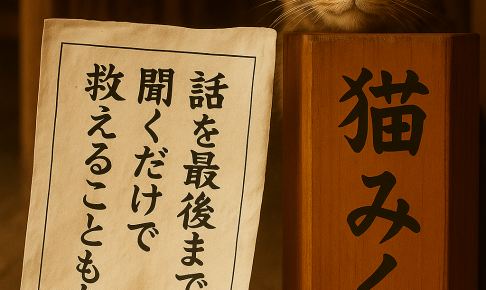 話を最後まで
聞くだけで
救えることも
猫み